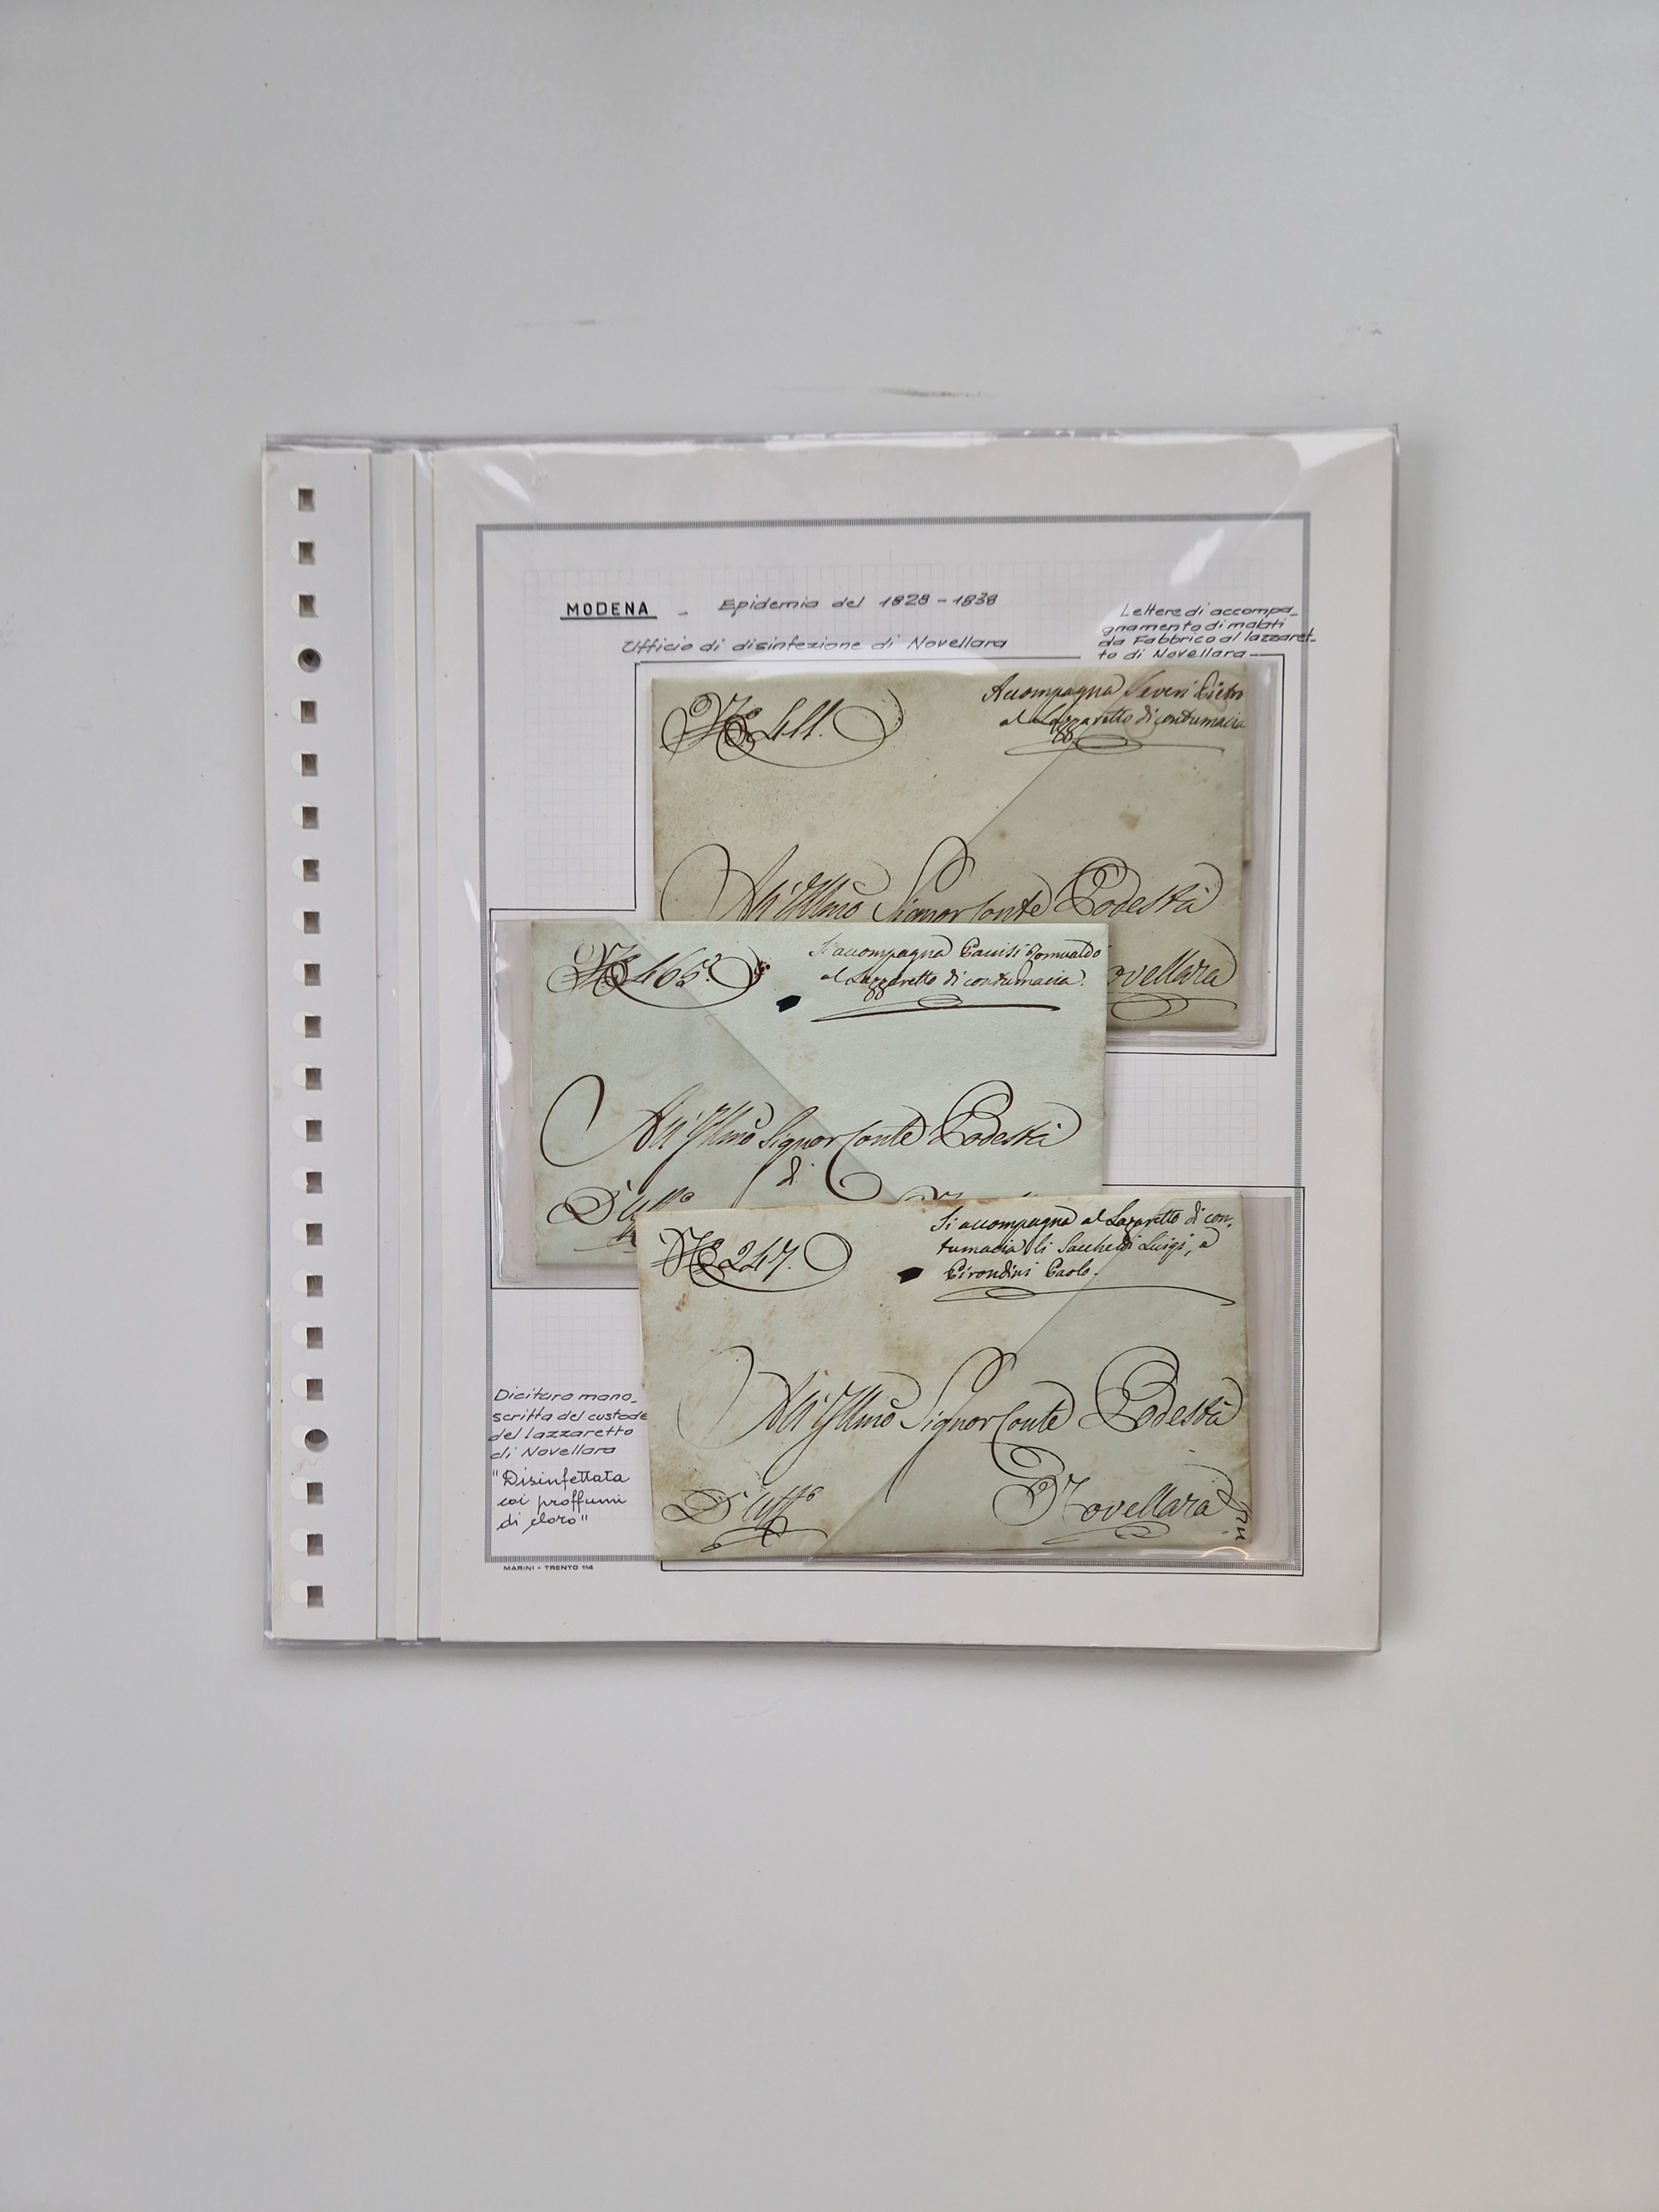 MODENA - Epidemia del 1828-1838
Ufficio di disinfezione di Novellara
Lettere di accompa_
gnamento di malati
da Fabbrico al lazzaret_
to di Novellara
Accompagna Severi Pietro
al Lazzaretto di contumacia
All' Illmo Signor Conte Podestà
Novellara
N° 465.
Si accompagna Romualdo
al Lazzaretto di contumacia.
All' Illmo Signor Conte Podestà
di
D' Uffo
N° 247.
Si accompagna al Lazaretto di con-
tumacia li Sacchetti Luigi, e
Girondini Paolo.
All' Illmo Signor Conte Podestà
D' Uffo
Novellara
Dicitura mano_
scritta del custode
del lazzaretto
di Novellara
"Disinfettata
coi proffumi
di cloro"
MARINI - TRENTO 114